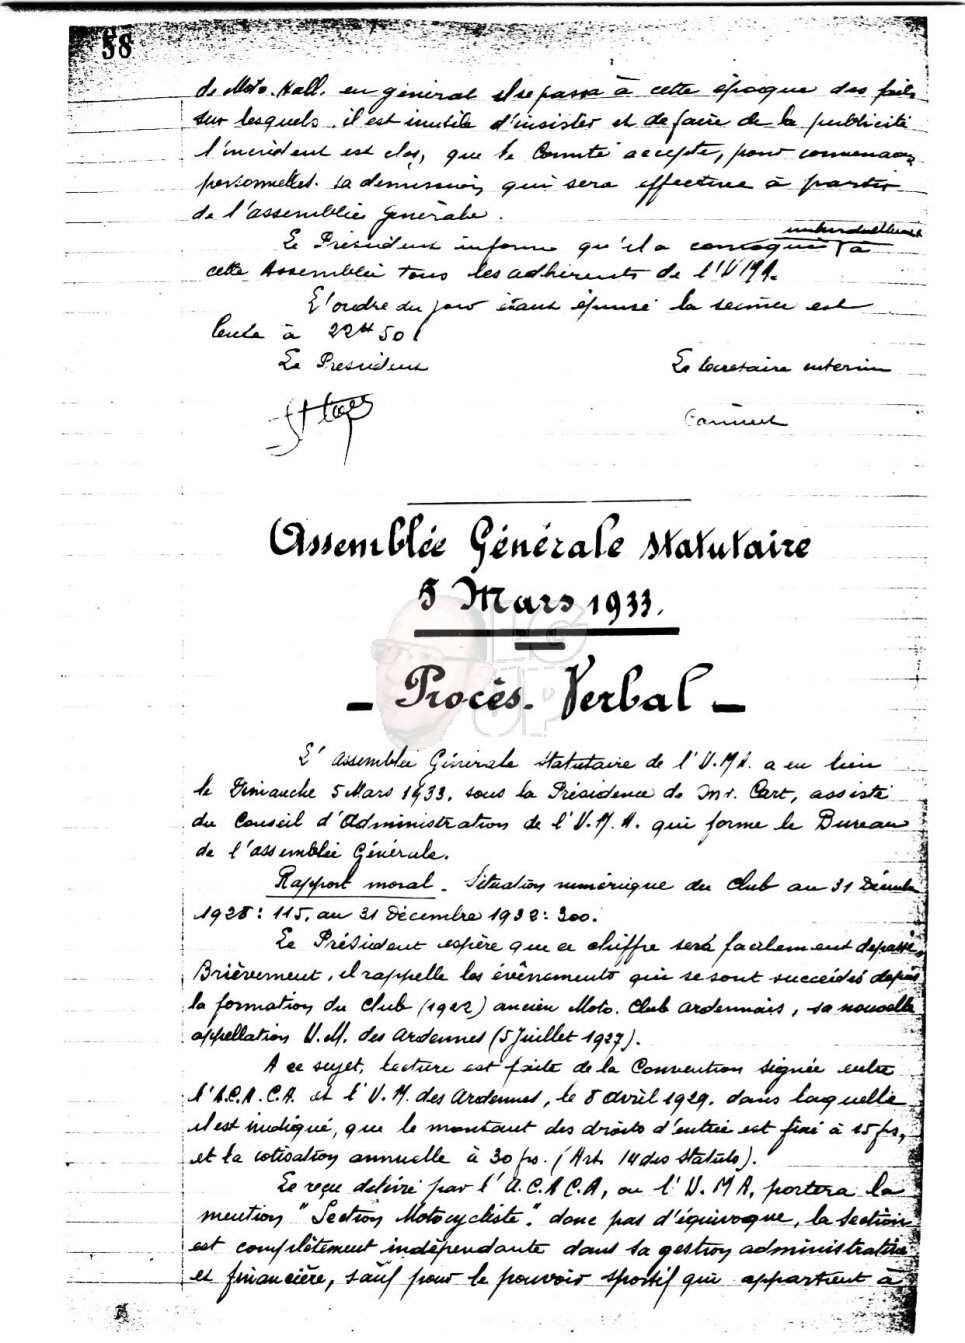 58
de Moto-Hall, en général il se passa à cette époque des faits
sur lesquels il est inutile d'insister et de faire de la publicité
l'incident est clos, que le Comité accepte, pour convenances
personnelles. sa démission, qui sera effective à partir
de l'assemblée générale.
Le Président informe qu'il a convoqué individuellement à
cette Assemblée tous les adhérents de l'UMA.
L'ordre du jour étant épuisé la séance est
levée à 22H50
Le Président Le Secrétaire interim
Assemblée Générale statutaire
5 Mars 1933.
- Procès-Verbal -
L'assemblée Générale statutaire de l'U.M.A. a eu lieu
le Dimanche 5 Mars 1933, sous la Présidence de Mr. Cart, assisté
du Conseil d'Administration de l'U.M.A. qui forme le Bureau
de l'assemblée Générale.
Rapport moral. Situation numérique du Club au 31 Décembre
1928: 115, au 31 Décembre 1932: 300.
Le Président espère que ce chiffre sera facilement dépassé.
Brièvement, il rappelle les évènements qui se sont succédés depuis
la formation du Club (1922) ancien Moto-Club ardennais, sa nouvelle
appellation U.M. des Ardennes (5 Juillet 1927).
A ce sujet, lecture est faite de la Convention signée entre
l'A.C.A.C.A. et l'U.M. des Ardennes, le 8 avril 1929, dans laquelle
il est indiqué, que le montant des droits d'entrée est fixé à 15 frs,
et la cotisation annuelle à 30 frs. (Art. 14 des Statuts).
Le reçu délivré par l'A.C.A.C.A, ou l'U.M.A, portera la
mention "Section Motocycliste". donc pas d'équivoque, la section
est complètement indépendante dans sa gestion administrative
et financière, sauf pour le pouvoir sportif qui appartient à